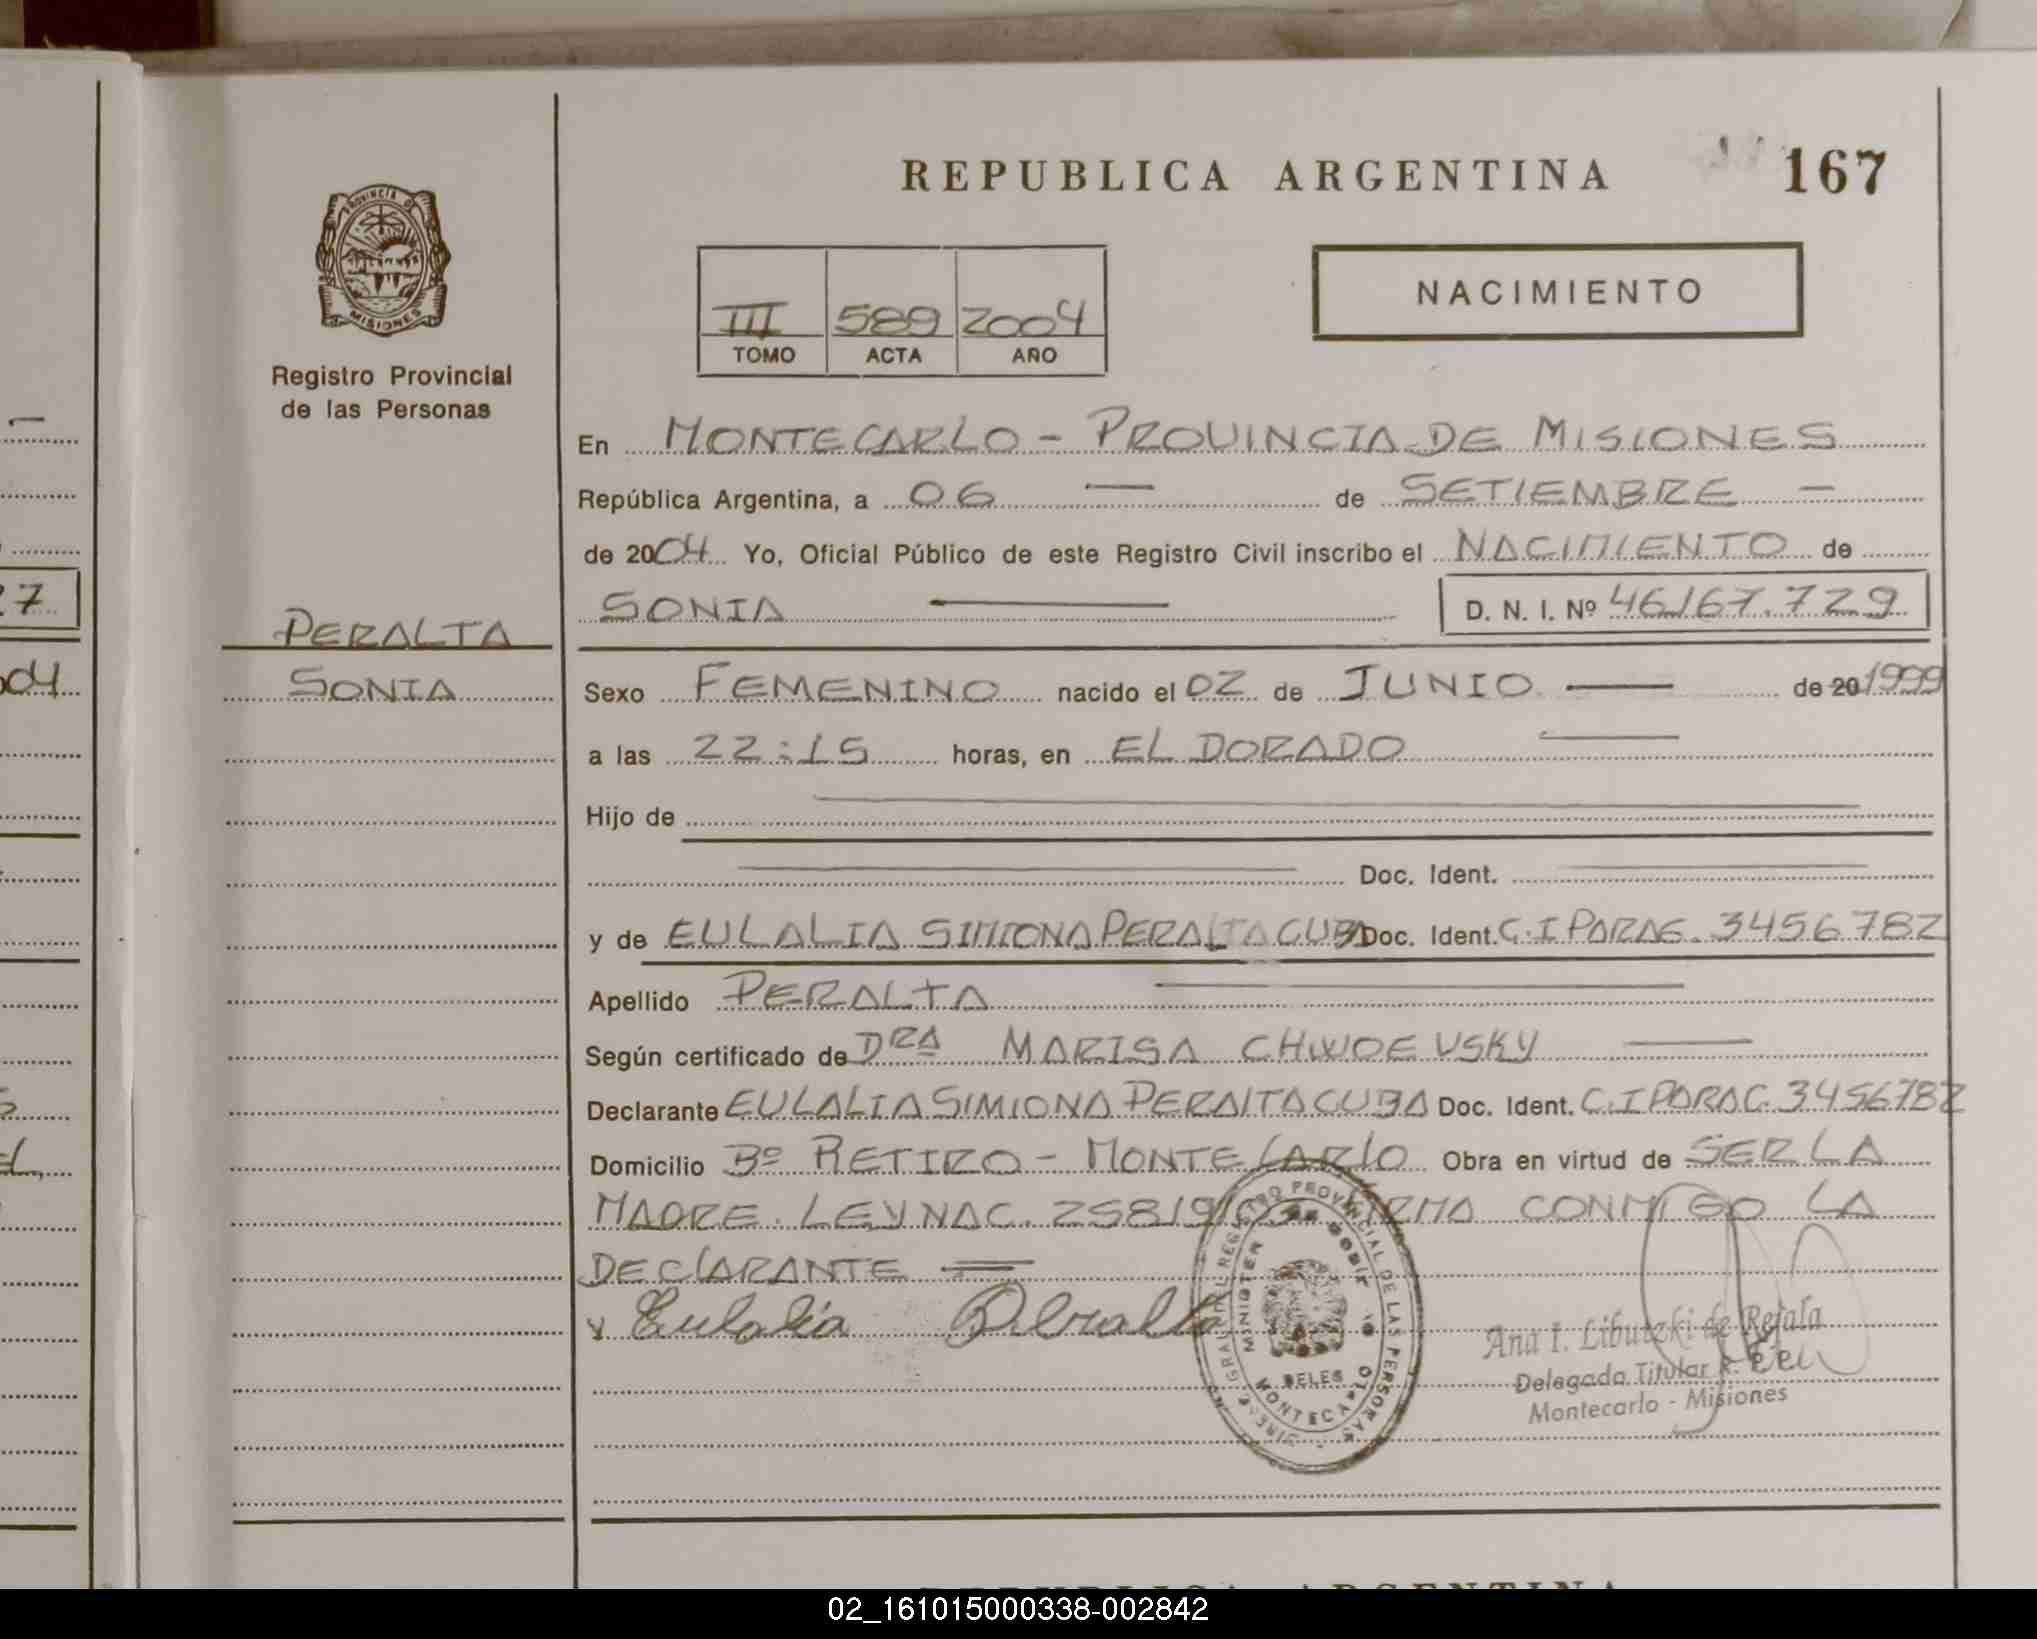 REPUBLICA ARGENTINA 167
PROVINCIA DE
MISIONES
Registro Provincial
de las Personas
III 589 2004
TOMO ACTA AÑO
NACIMIENTO
En MONTECARLO - PROVINCIA DE MISIONES
República Argentina, a 06 — de SETIEMBRE —
de 2004 Yo, Oficial Público de este Registro Civil inscribo el NACIMIENTO de
SONIA — D. N. I. Nº 46167.729
27
PERALTA
SONIA
04
Sexo FEMENINO nacido el 02 de JUNIO — de 20 1999
a las 22:15 horas, en EL DORADO —
Hijo de
Doc. Ident.
y de EULALIA SIMIONA PERALTA CUBA Doc. Ident. C.I PARAG. 3456782
Apellido PERALTA
Según certificado de DRA MARISA
Declarante EULALIA SIMIONA PERALTA CUBA Doc. Ident. C.I PARAG. 3456782
Domicilio Bº RETIRO - MONTECARLO Obra en virtud de SER LA
MADRE. LEY NAC. FIRMA CONMIGO LA
DECLARANTE =
Eulalia Peralta
REGISTRO PROVINCIAL DE LAS PERSONAS
MONTECARLO
Ana I. de Rejala
Delegada Titular
Montecarlo - Misiones
REPUBLICA ARGENTINA
02_161015000338-002842